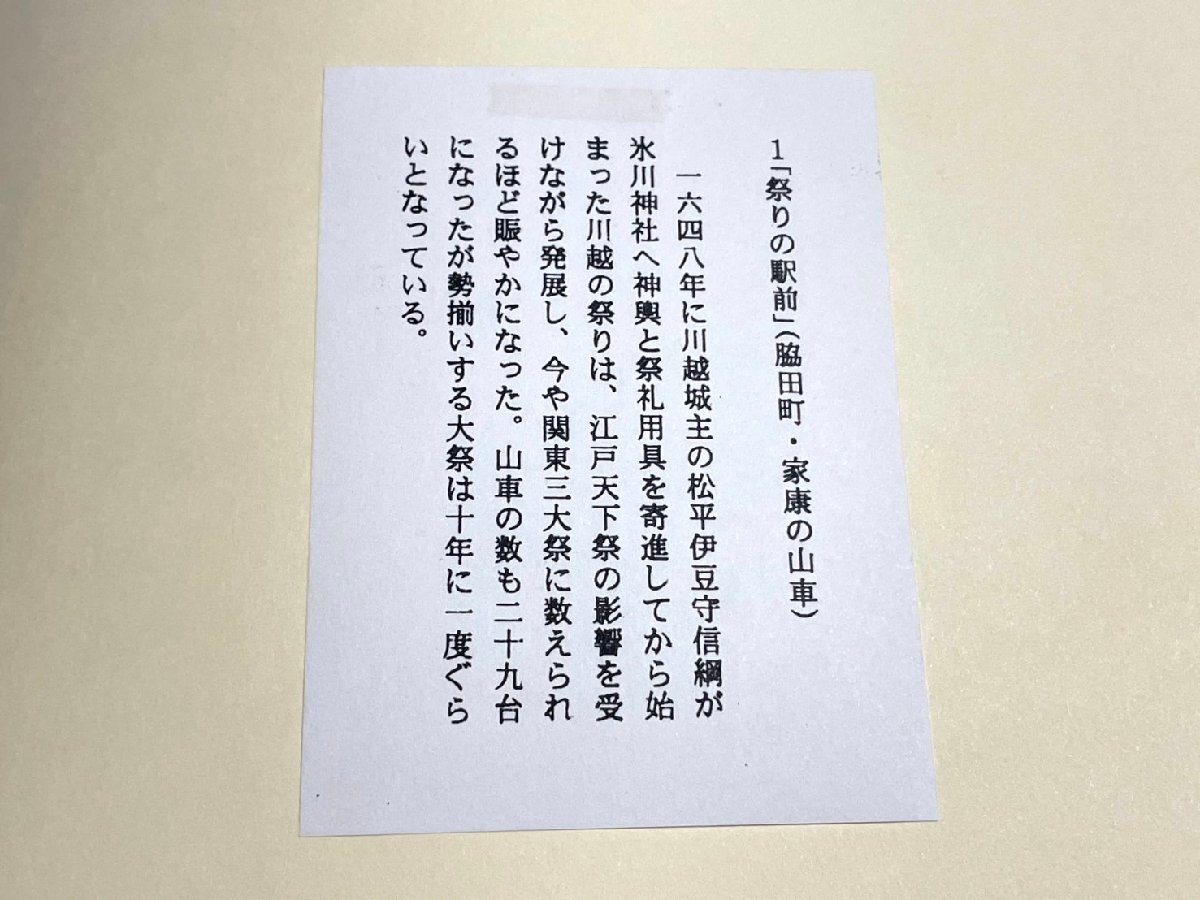 1「祭りの駅前」(脇田町・家康の山車)
一六四八年に川越城主の松平伊豆守信綱が
氷川神社へ神輿と祭礼用具を寄進してから始
まった川越の祭りは、江戸天下祭の影響を受
けながら発展し、今や関東三大祭に数えられ
るほど賑やかになった。山車の数も二十九台
になったが勢揃いする大祭は十年に一度ぐら
いとなっている。